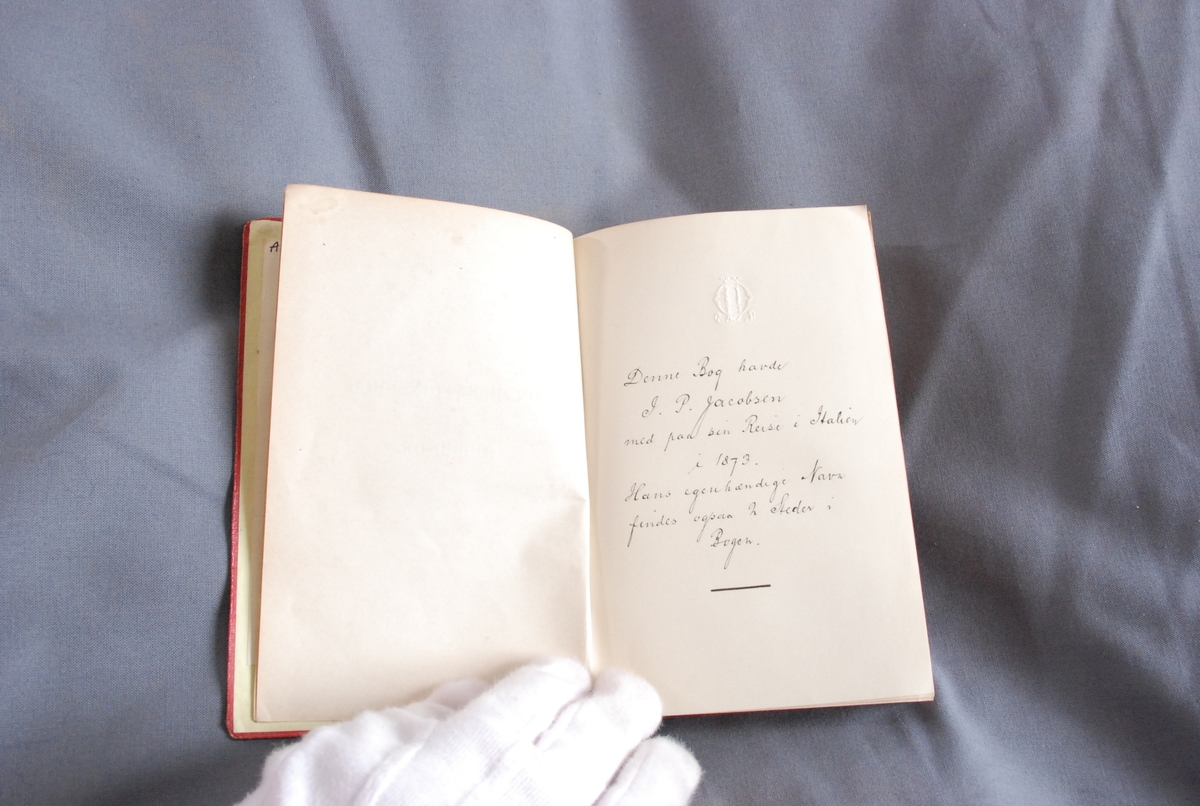 A
Denne Bog havde
J. P. Jacobsen
med paa sin Reise i Italien
i 1873.
Hans egenhændige Navn
findes ogsaa 2 Steder i
Bogen.